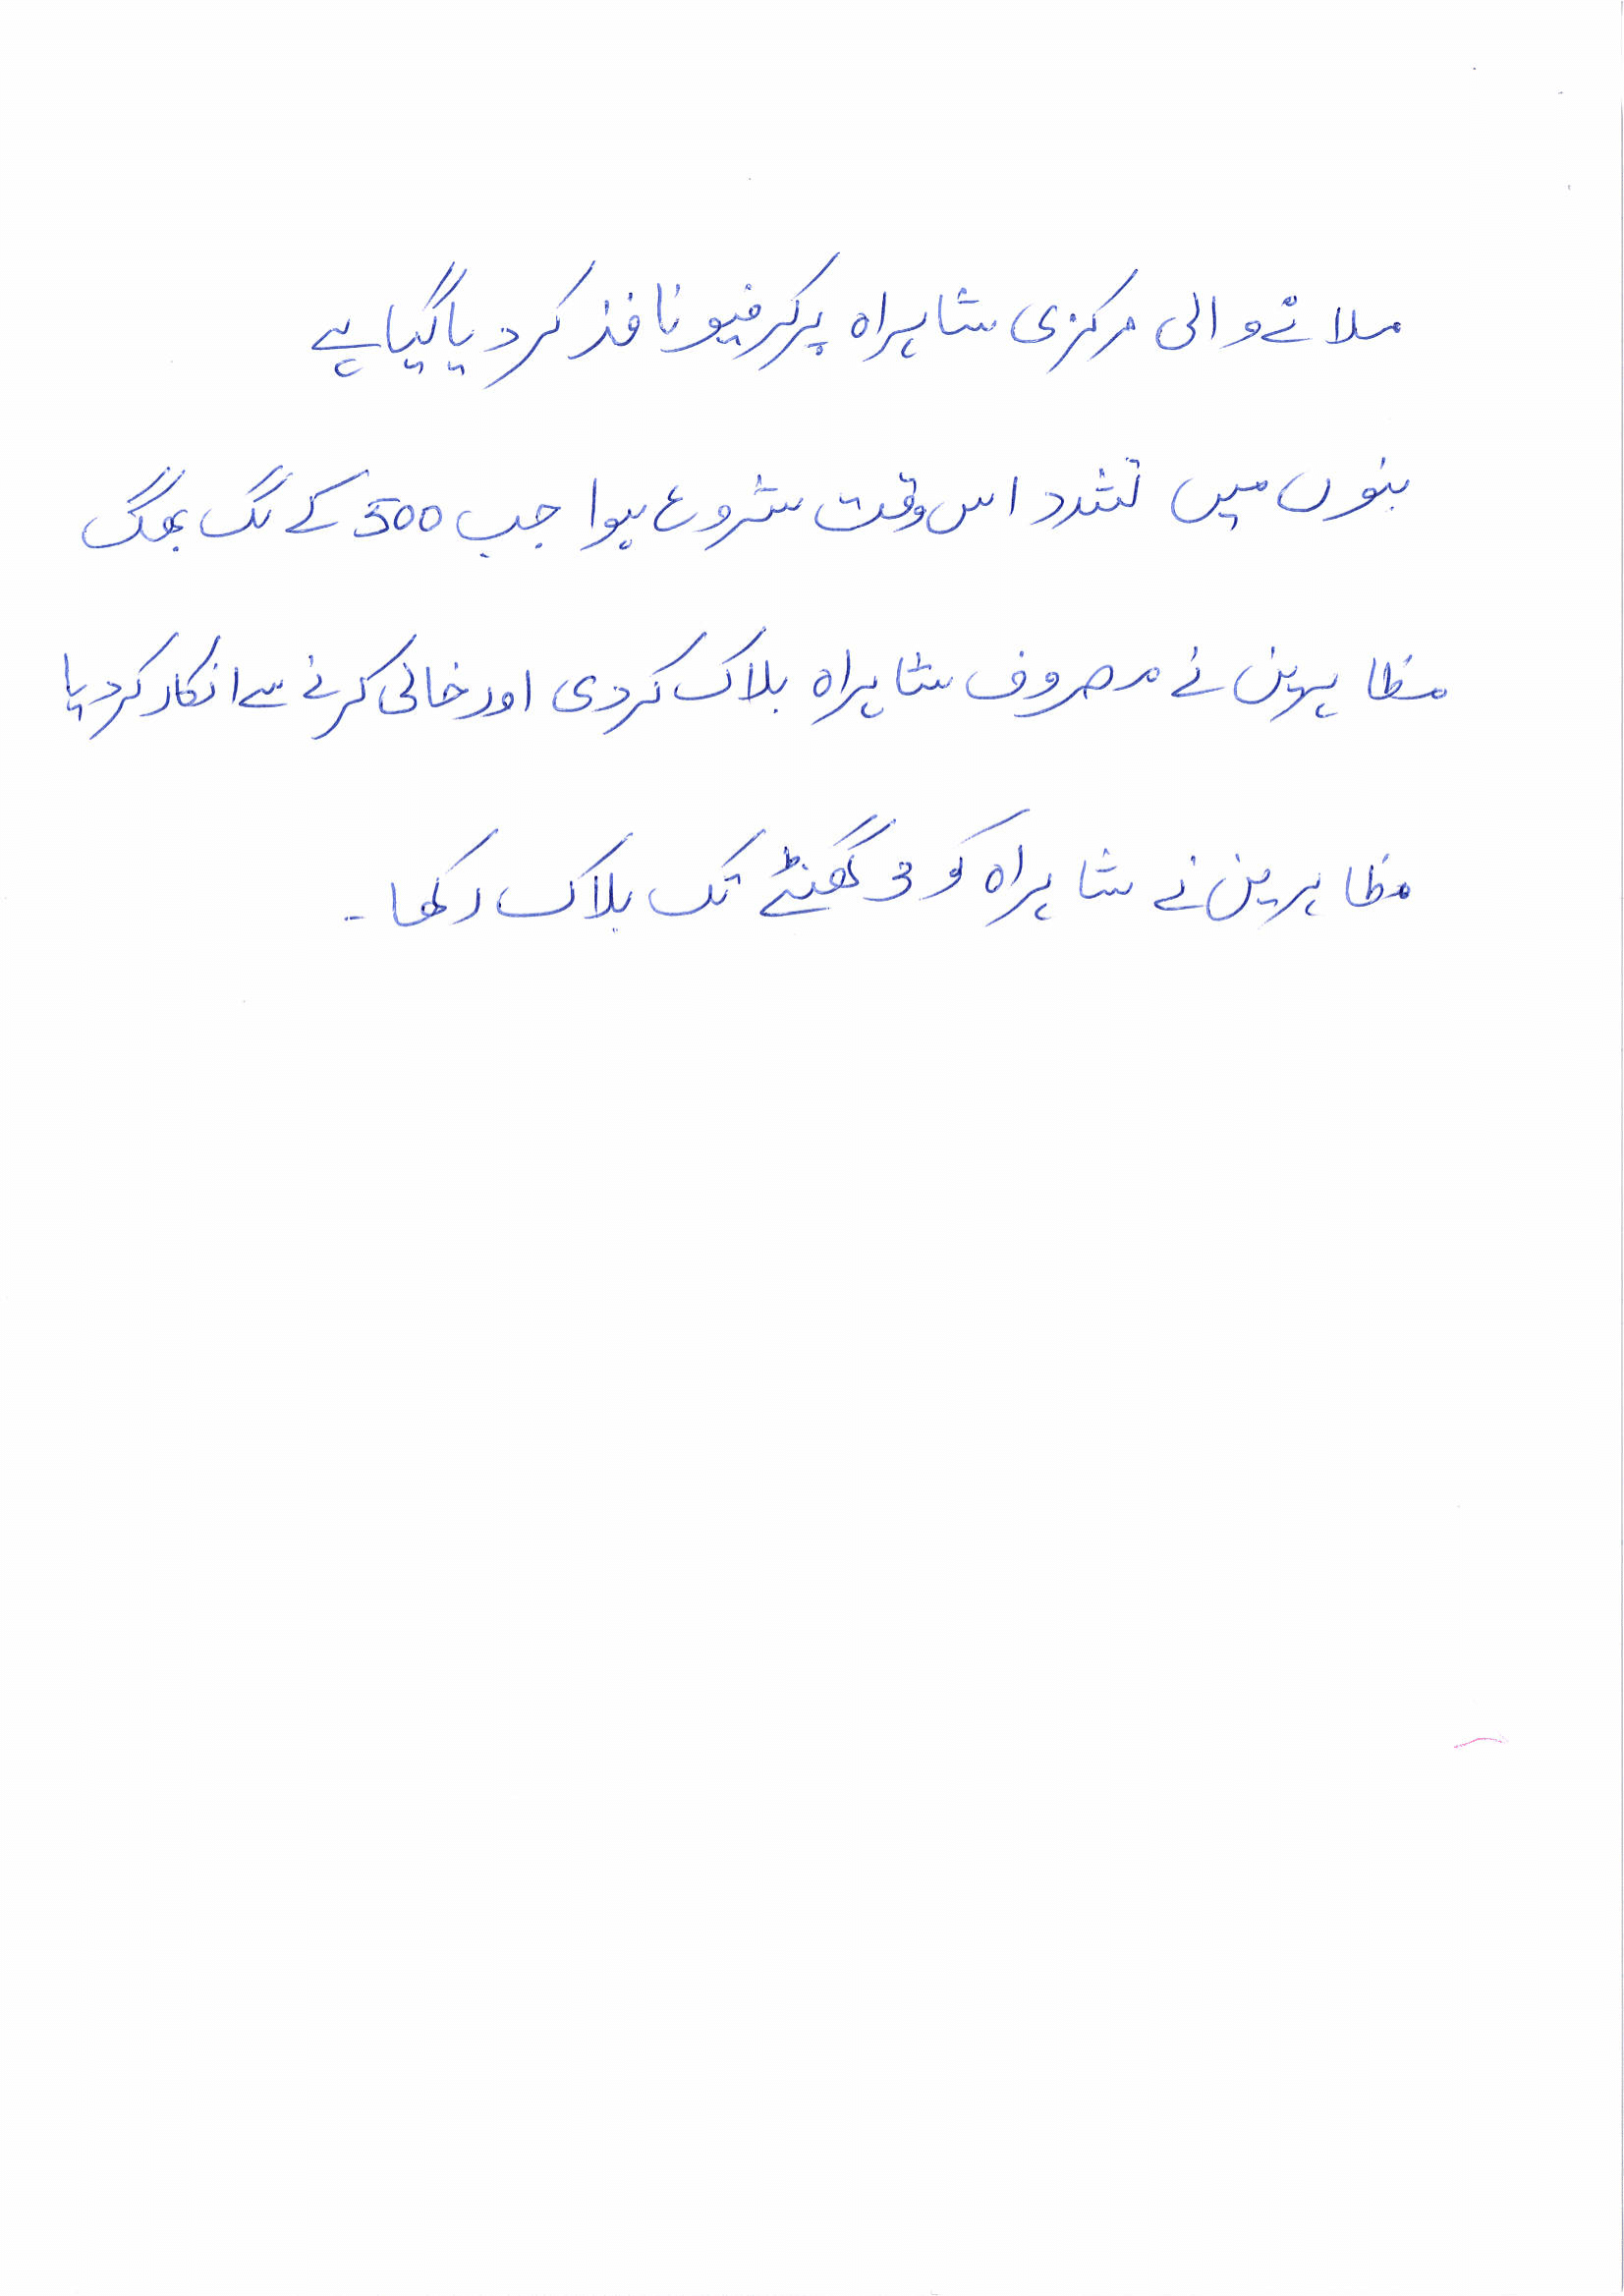 ملانے والی مرکزی شاہراہ پر کرفیو نافذ کر دیا گیا ہے
بنوں میں تشدد اس وقت شروع ہوا جب 500 کے لگ بھگ
مظاہرین نے مصروف شاہراہ بلاک کر دی اور خالی کرنے سے انکار کر دیا
مظاہرین نے شاہراہ کو 3 گھنٹے تک بلاک رکھا۔